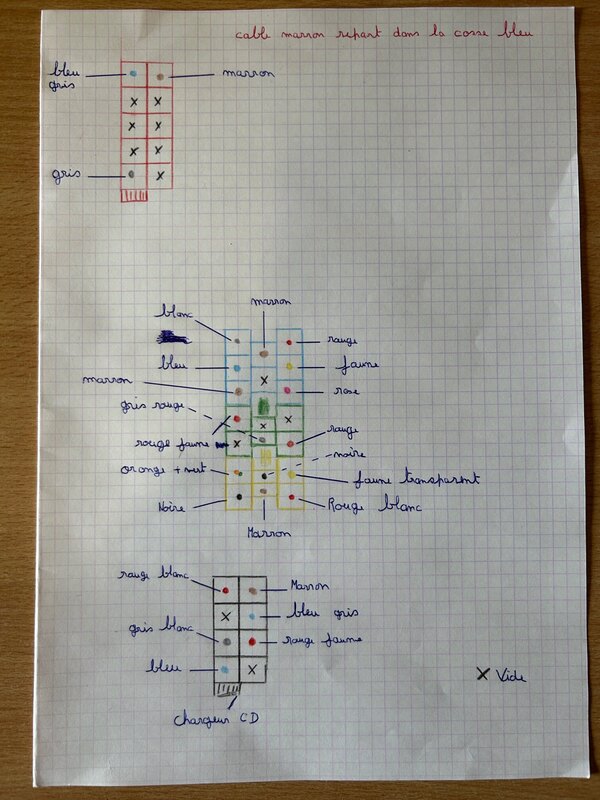 cable marron repart dans la cosse bleu
bleu
gris
marron
x x
x x
x x
gris
x
marron
blanc
rouge
bleu
jaune
x
marron
rose
gris rouge
x
x
rouge jaune
x
rouge
noire
orange + vert
jaune transparent
Noire
Rouge blanc
Marron
rouge blanc
Marron
x
bleu gris
gris blanc
rouge jaune
bleu
x
x Vide
chargeur CD